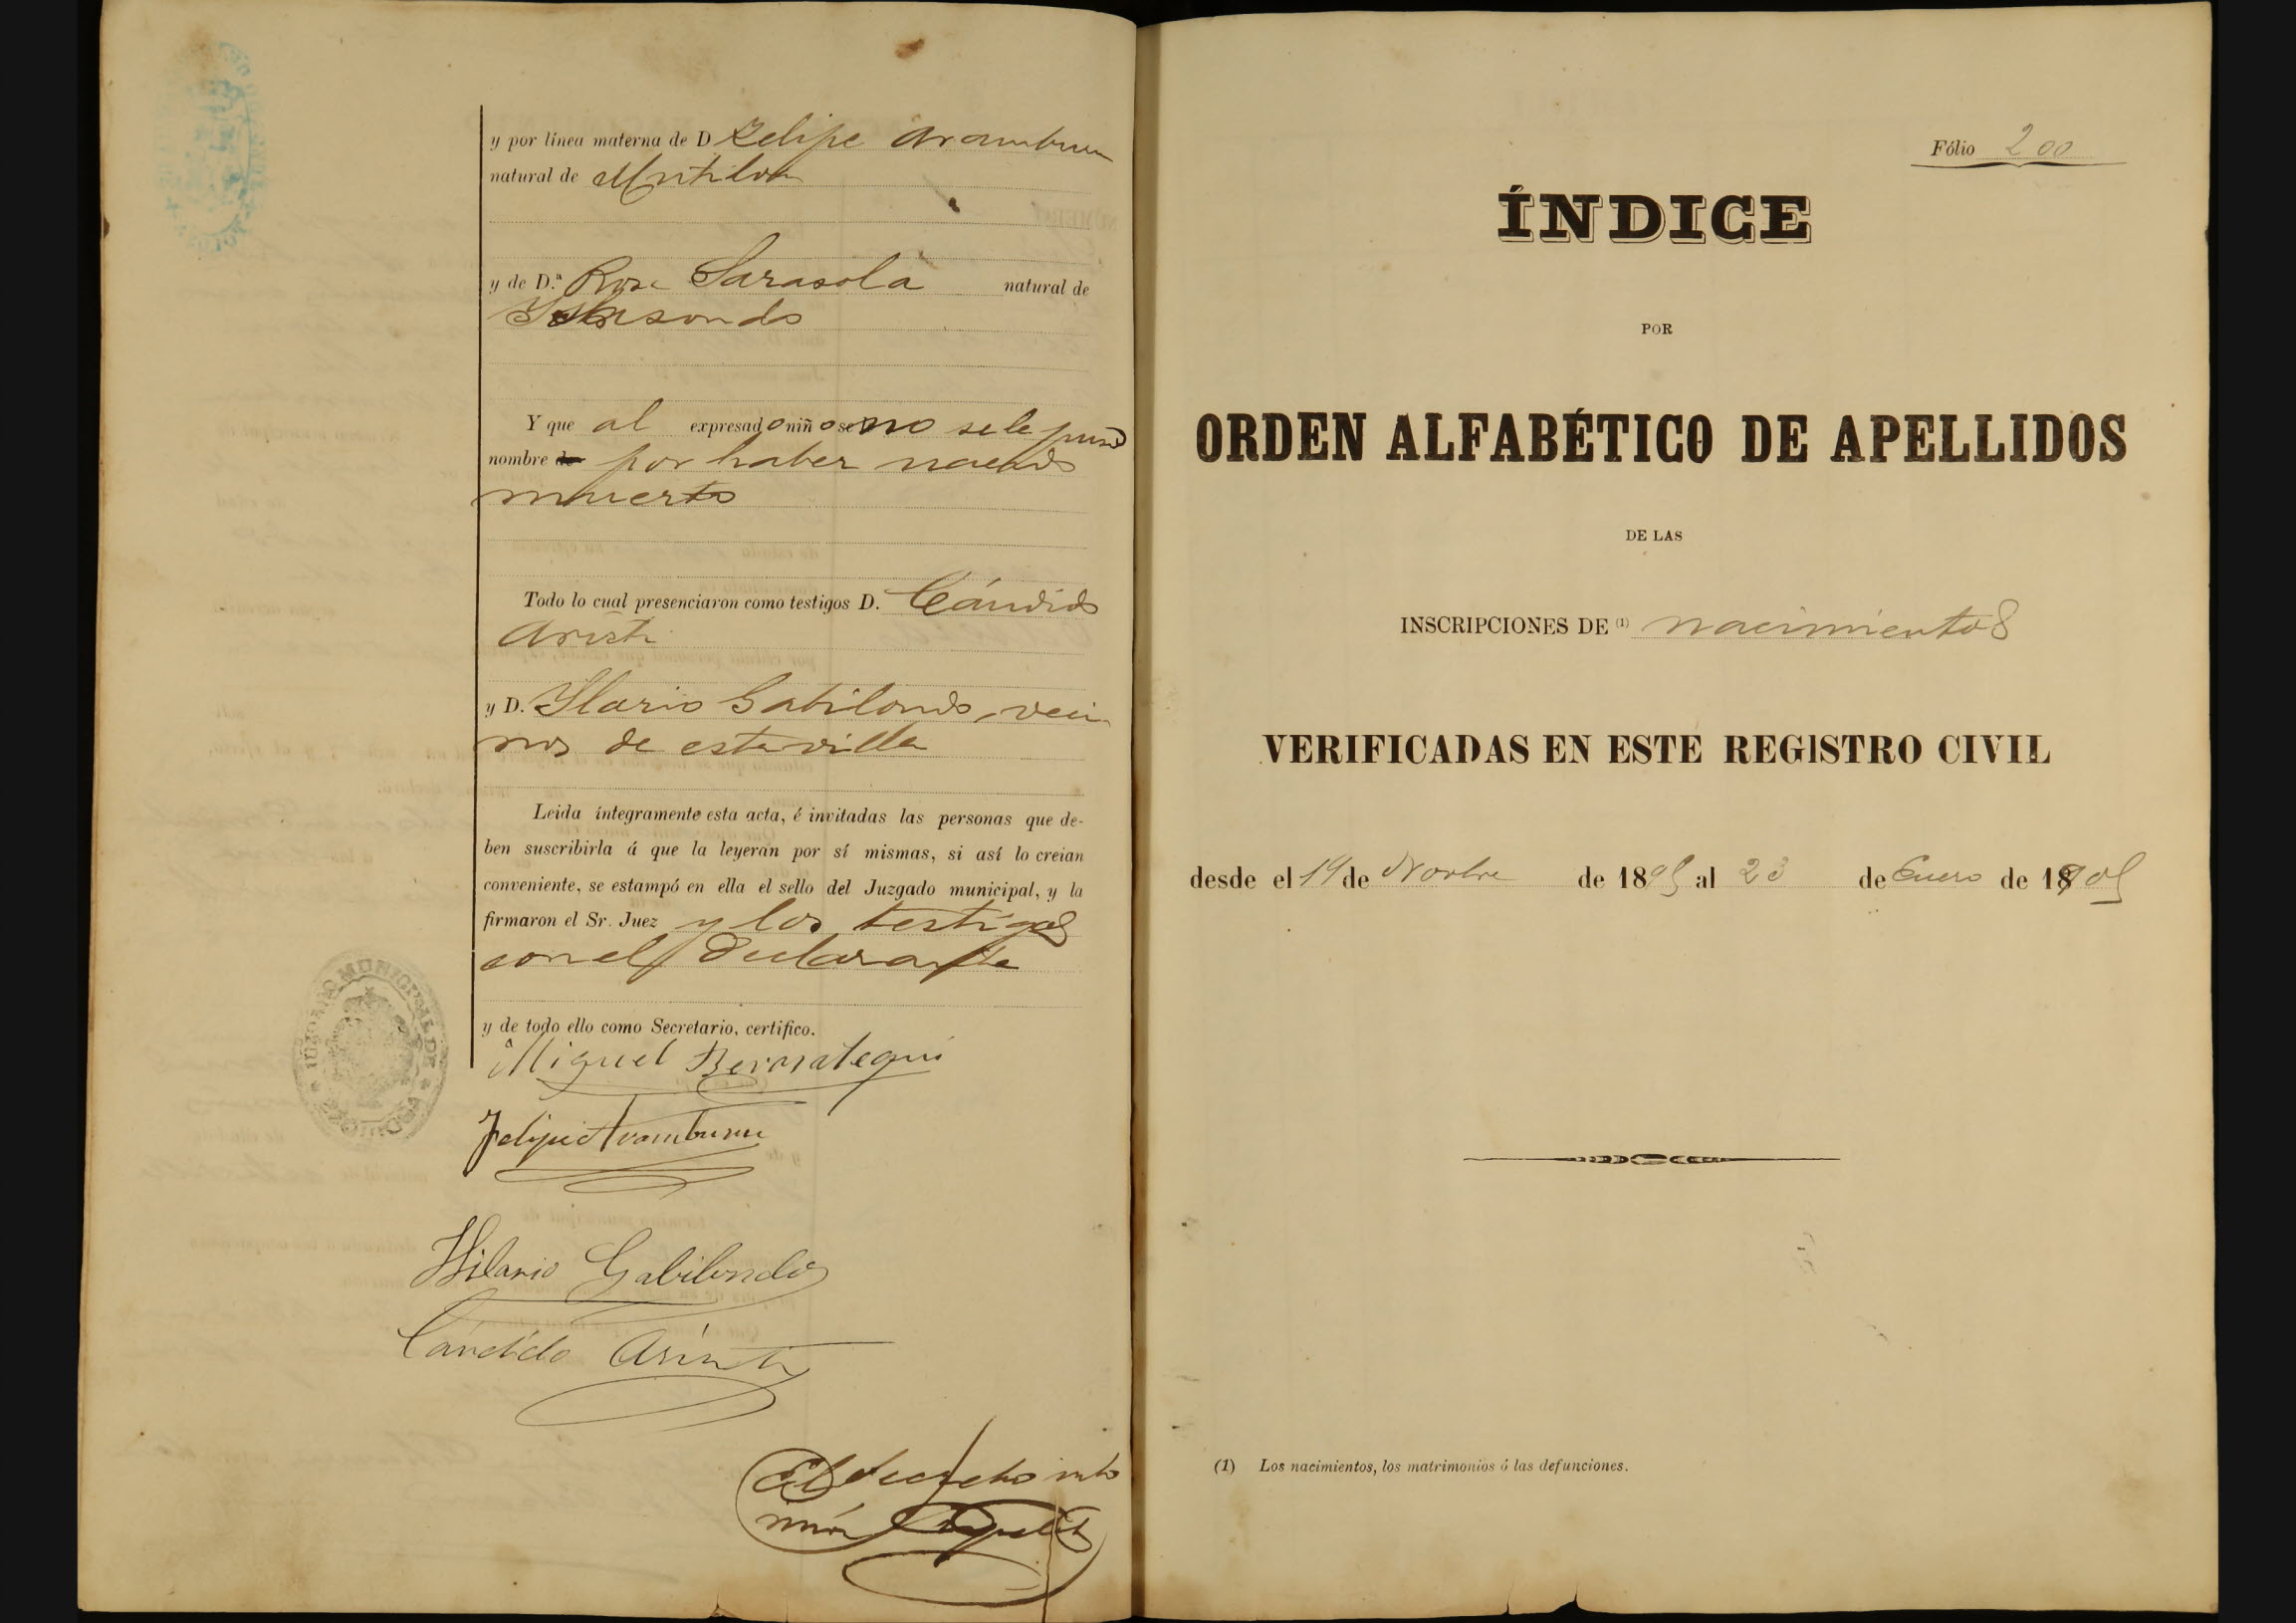 y por línea materna de D Felipe Aramburu
natural de Mutiloa
y de D.ª Rosa Sarasola natural de
Ichasondo
Y que al expresado niño se no se le puso
nombre de por haber nacido
muerto
Todo lo cual presenciaron como testigos D. Cándido
Aristi
y D. Ilario Gabilondo, veci
nos de esta villa
Leida íntegramente esta acta, é invitadas las personas que de-
ben suscribirla á que la leyeran por sí mismas, si así lo creian
conveniente, se estampó en ella el sello del Juzgado municipal, y la
firmaron el Sr. Juez y los testigos
con el declarante
y de todo ello como Secretario, certifico.
JUZGADO MUNICIPAL DE
Miguel Berasategui
Felipe Aramburu
Hilario Gabilondo
Cándido Aristi
El Secretario
Fólio 200
ÍNDICE
POR
ORDEN ALFABÉTICO DE APELLIDOS
DE LAS
INSCRIPCIONES DE (1) nacimientos
VERIFICADAS EN ESTE REGISTRO CIVIL
desde el 19 de Novbre de 1895 al 23 de Enero de 1905
(1) Los nacimientos, los matrimonios ó las defunciones.